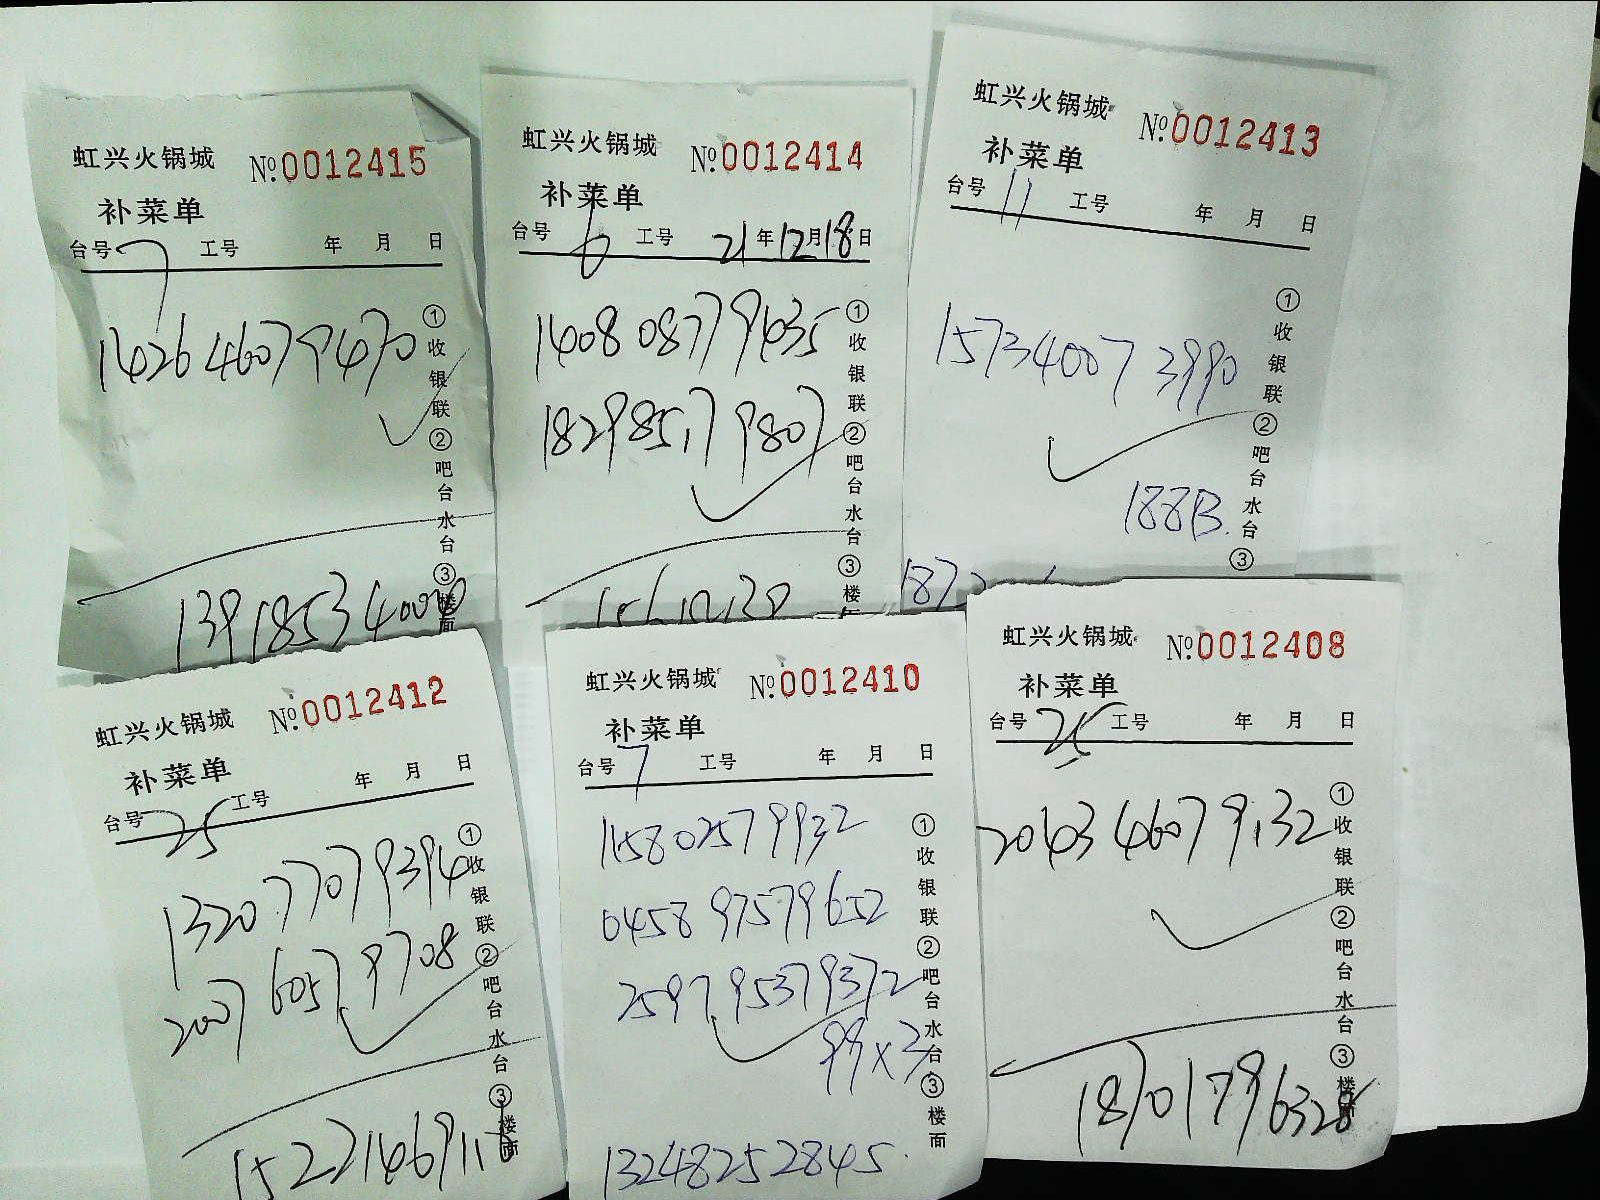 虹兴火锅城 №0012415
补菜单
台号 7 工号 年 月 日
1426 4607 9470
①收银联②吧台水台③楼面
虹兴火锅城 №0012414
补菜单
台号 6 工号 21年12月18日
1408 0877 9635
1829 8517 9807
①收银联②吧台水台③楼
虹兴火锅城 №0012413
补菜单
台号 11 工号 年 月 日
1573 4007 3990
188B.
①收银联②吧台水台③
虹兴火锅城 №0012412
补菜单
台号 25 工号 年 月 日
1320 7707 9394
2007 6057 9708
①收银联②吧台水台③楼面
虹兴火锅城 №0012410
补菜单
台号 7 工号 年 月 日
1158 0257 9932
0458 9757 9652
2597 9537 9372
99x3
13248252845.
①收银联②吧台水台③楼面
虹兴火锅城 №0012408
补菜单
台号 25 工号 年 月 日
2043 4607 9132
18701796328
①收银联②吧台水台③楼面